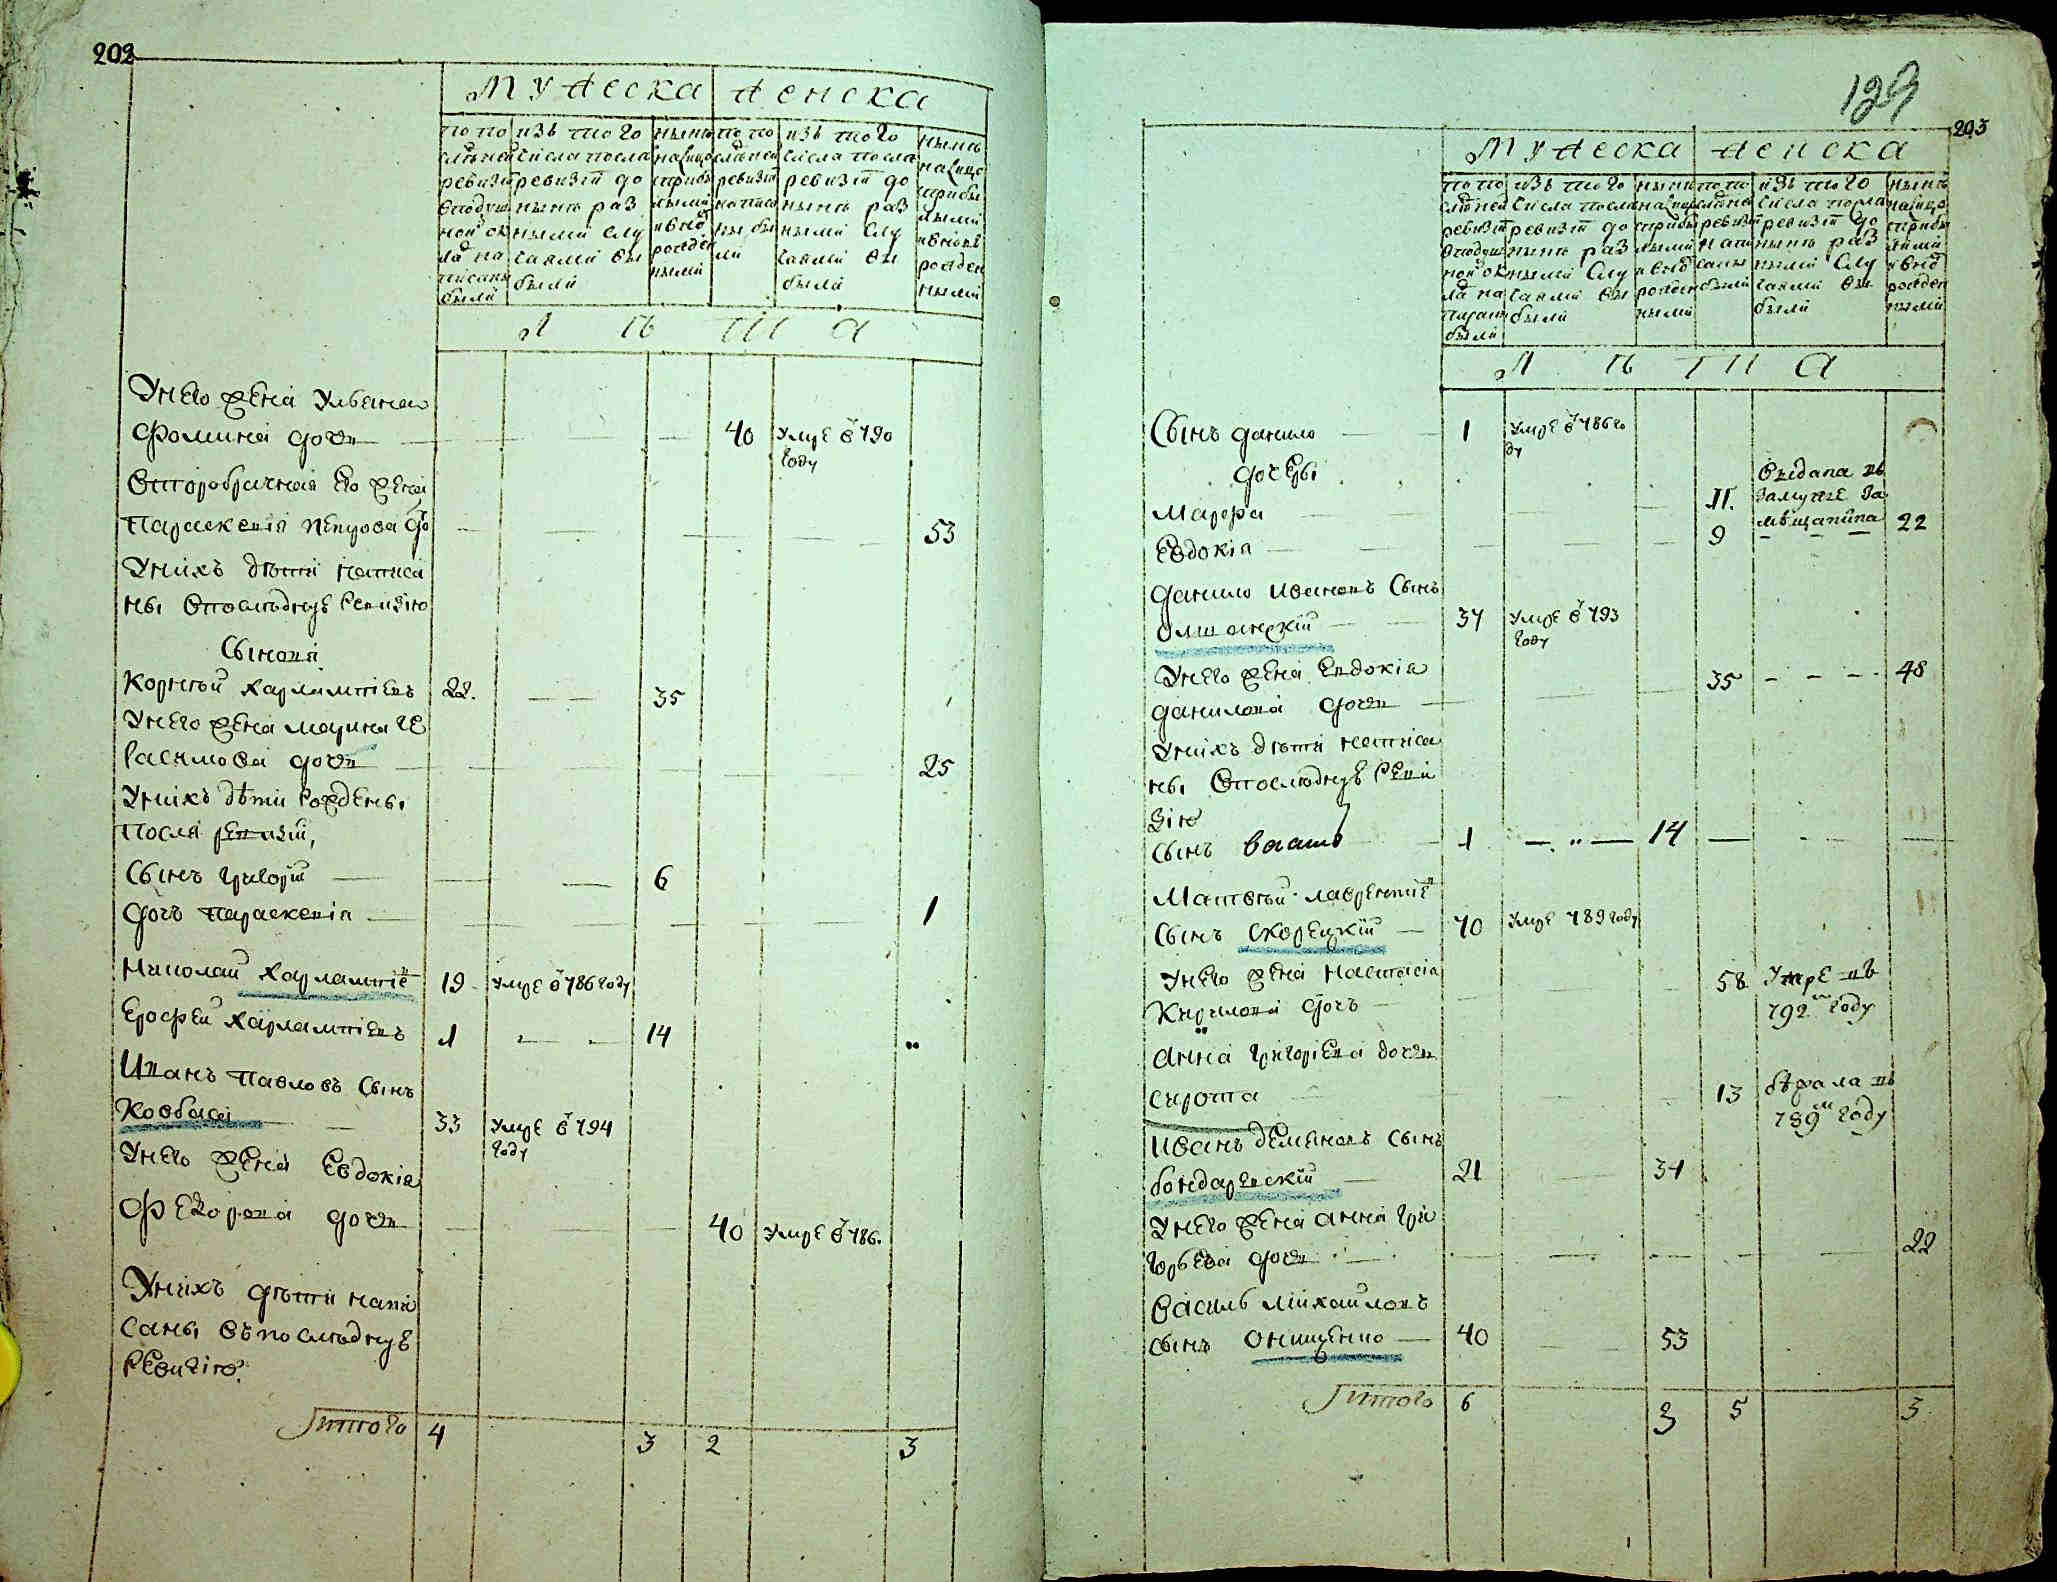 202
Мужеска женска
по по
слѣдней
ревизіи
вподуш
ной ок
ладъ на
писаны
были
изъ того
числа посла
ревизіи до
нынѣ раз
ными слу
чаями вы
были
нынѣ
налицо
прибы
лыми
ивно
рожден
ными
по по
слѣдней
ревизіи
написа
ны бы
ли
изъ того
числа посла
ревизіи до
нынѣ раз
ными слу
чаями вы
были
нынѣ
налицо
прибы
лыми
ивновъ
рожден
ными
Л ѣ т а
Унего жена Ульяна
Фомина дочь 40 Умре в 790
году
Второбрачная его жена
Параскевія Петрова до 53
Унихъ дѣти написа
ны впослѣднуе ревизію
Сынови
Корнѣй Харлампіевъ 22. 35
Унего жена марина ге
расимова дочь 25
Унихъ дѣти рождены
посля ревизіи,
Сынъ григорій 6
дочь параскевія 1
Николай Харлампіе 19 Умре в 786 году
Ерофей Харлампіевъ 1 14
Иванъ Павловъ Сынъ
Ковбаса 33 Умре в 794
году
Унего жена Евдокія
Федорова дочь 40 Умре в 786.
Унихъ дѣти напи
саны въпослѣднуе
Ревизію:
Итого 4 3 2 3
129
203
Мужеска женска
по по
слѣдней
ревизіи
вподуш
ной ок
ла на
писаны
были
изъ того
числа посла
ревизіи до
нынѣ раз
ными слу
чаями вы
были
нынѣ
налицо
прибы
лыми
ивно
рожден
ными
по по
слѣдне
ревизіи
напи
саны
были
изъ того
числа посла
ревизіи до
нынѣ раз
ными слу
чаями вы
были
нынѣ
налицо
прибы
лыми
ивно
рожден
ными
Л ѣ т а
Сынъ данило 1 Умре в 786 го
ду
дочеры
Марфа 11. Выдана въ
замуже за
мѣщанина
Евдокія 9 22
данило Ивановъ Сынъ
Олшанскій 37 Умре в 793
году
Унего жена Евдокія
данилова дочь 35 48
Унихъ дѣти написа
ны впослѣднуе реви
зію
Сынъ Василь 1 14
Матвѣй лаврентіе
Сынъ Скорецкій 70 Умре 789 году
Унего жена настасія
Кирилова дочъ 58 Умре въ
792м году
анна григоріева дочь
сирота 13 бѣжала въ
789м году
Иванъ деменовъ Сынъ
бондаревскій 21 34
Унего жена анна гри
горьева дочь 22
Василь михайловъ
сынъ Онищенко 40 53
Итого 6 3 5 3